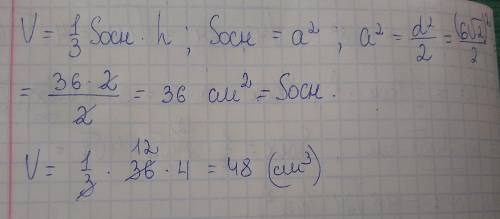 V = 1/3 Sосн · h ; Sосн = a² ; a² = d²/2 = (6√2)²/2
= 36 · 2/2 = 36 см² = Sосн.
V = 1/3 · 36 12 · 4 = 48 (см³)